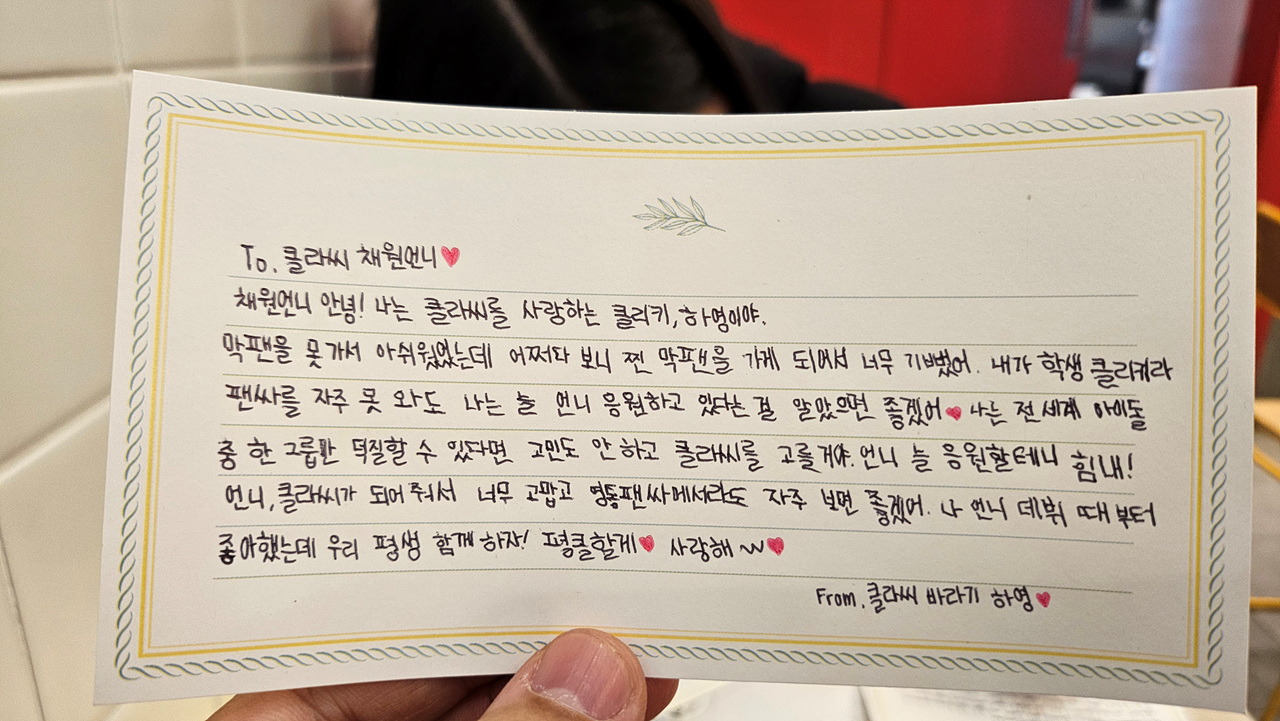 To. 클라씨 채원언니♥
채원언니 안녕! 나는 클라씨를 사랑하는 클리키, 하영이야.
막팬을 못가서 아쉬웠었는데 어쩌다 보니 찐 막팬을 가게 되어서 너무 기뻤어. 내가 학생 클리키라
팬싸를 자주 못 와도 나는 늘 언니 응원하고 있다는걸 알았으면 좋겠어♥ 나는 전세계 아이돌
중 한 그룹만 덕질할 수 있다면 고민도 안 하고 클라씨를 고를거야. 언니 늘 응원할테니 힘내!
언니, 클라씨가 되어줘서 너무 고맙고 영통팬싸에서라도 자주 보면 좋겠어. 나 언니 데뷔 때부터
좋아했는데 우리 평생 함께 하자! 평클할게♥ 사랑해~♥
From. 클라씨 바라기 하영♥